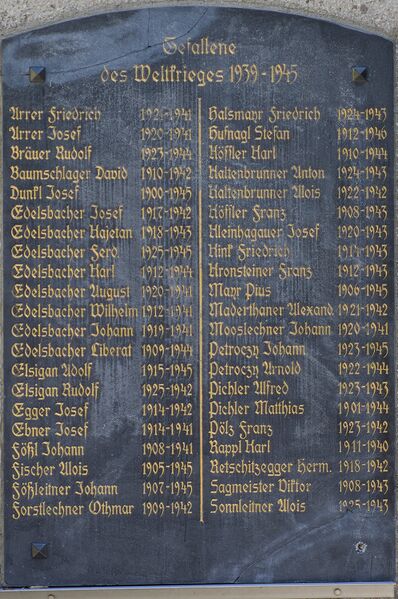 Gefallene
des Weltkrieges 1939-1945
Arrer Friedrich 1921-1941
Arrer Josef 1920-1941
Bräuer Rudolf 1923-1944
Baumschlager David 1910-1942
Dunkl Josef 1900-1945
Edelsbacher Josef 1917-1942
Edelsbacher Kajetan 1918-1943
Edelsbacher Ferd. 1925-1945
Edelsbacher Karl 1912-1944
Edelsbacher August 1920-1941
Edelsbacher Wilhelm 1912-1941
Edelsbacher Johann 1919-1941
Edelsbacher Liberat 1909-1944
Elsigan Adolf 1915-1945
Elsigan Rudolf 1925-1942
Egger Josef 1914-1942
Ebner Josef 1914-1941
Fößl Johann 1908-1941
Fischer Alois 1905-1945
Fößleitner Johann 1907-1945
Forstlechner Othmar 1909-1942
Halsmayr Friedrich 1924-1943
Hufnagl Stefan 1912-1946
Karl 1910-1944
Kaltenbrunner Anton 1924-1943
Kaltenbrunner Alois 1922-1942
Franz 1908-1943
Kleinhagauer Josef 1920-1943
Kink Friedrich 1914-1943
Kronsteiner Franz 1912-1943
Mayr Pius 1906-1945
Maderthaner Alexand. 1921-1942
Mooslechner Johann 1920-1941
Petroczy Johann 1923-1945
Petroczy Arnold 1922-1944
Pichler Alfred 1923-1943
Pichler Matthias 1901-1944
Pölz Franz 1923-1942
Rappl Karl 1911-1940
Retschitzegger Herm. 1918-1942
Sagmeister Viktor 1908-1943
Sonnleitner Alois 1925-1943